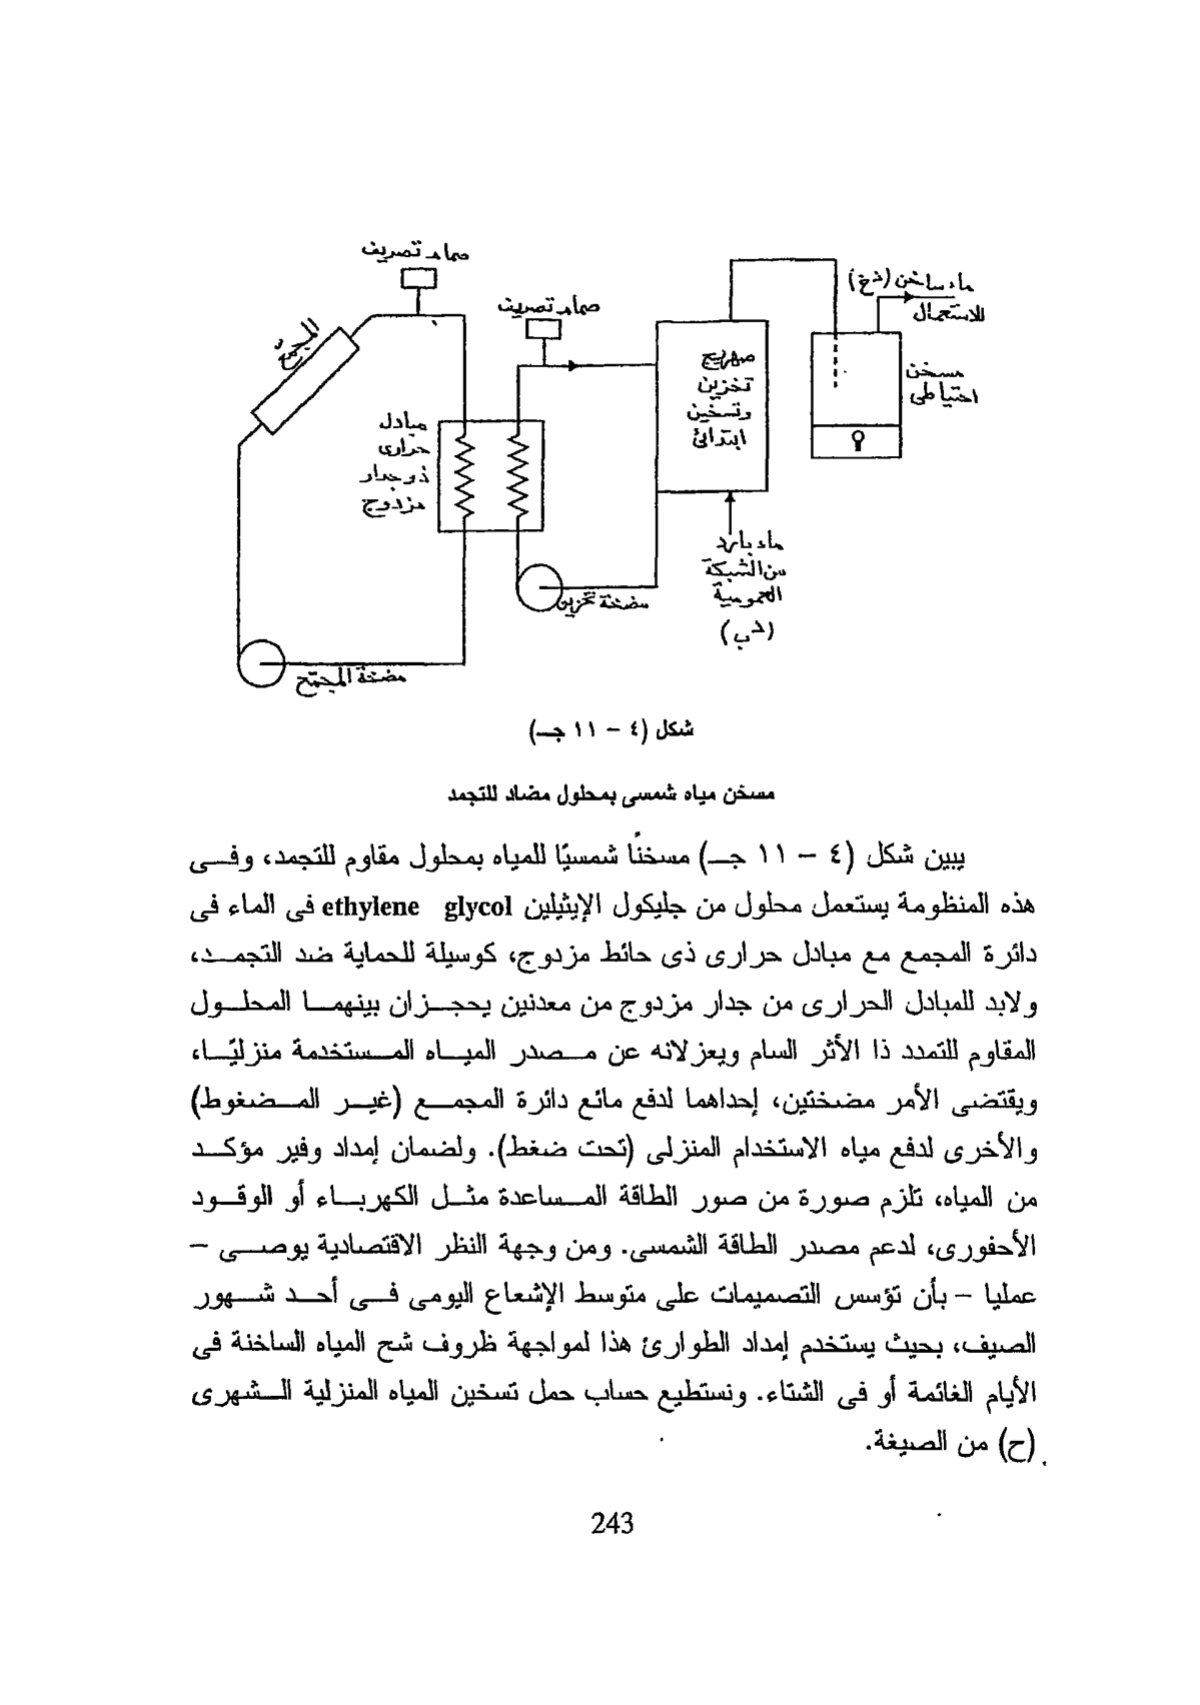 صمام تصريف
صمام تصريف
ماء ساخن (دخ)
للاستعمال
المجمع
صهريج
تخزين
وتسخين
ابتدائى
مسخن
احتياطى
مبادل
حرارى
ذو جدار
مزدوج
ماء بارد
من الشبكة
العمومية
(دب)
مضخة تخزين
مضخة المجمع
شكل (٤ – ١١ جـ)
مسخن مياه شمسى بمحلول مضاد للتجمد
يبين شكل (٤ – ١١ جـ) مسخنًا شمسيًا للمياه بمحلول مقاوم للتجمد، وفى
هذه المنظومة يستعمل محلول من جليكول الإيثيلين ethylene glycol فى الماء فى
دائرة المجمع مع مبادل حرارى ذى حائط مزدوج، كوسيلة للحماية ضد التجمد،
ولابد للمبادل الحرارى من جدار مزدوج من معدنين يحجزان بينهما المحلول
المقاوم للتمدد ذا الأثر السام ويعزلانه عن مصدر المياه المستخدمة منزليًا،
ويقتضى الأمر مضختين، إحداهما لدفع مائع دائرة المجمع (غير المضغوط)
والأخرى لدفع مياه الاستخدام المنزلى (تحت ضغط). ولضمان إمداد وفير مؤكد
من المياه، تلزم صورة من صور الطاقة المساعدة مثل الكهرباء أو الوقود
الأحفورى، لدعم مصدر الطاقة الشمسى. ومن وجهة النظر الاقتصادية يوصى –
عمليا – بأن تؤسس التصميمات على متوسط الإشعاع اليومى فى أحد شهور
الصيف، بحيث يستخدم إمداد الطوارئ هذا لمواجهة ظروف شح المياه الساخنة فى
الأيام الغائمة أو فى الشتاء. ونستطيع حساب حمل تسخين المياه المنزلية الشهرى
(ح) من الصيغة.
243